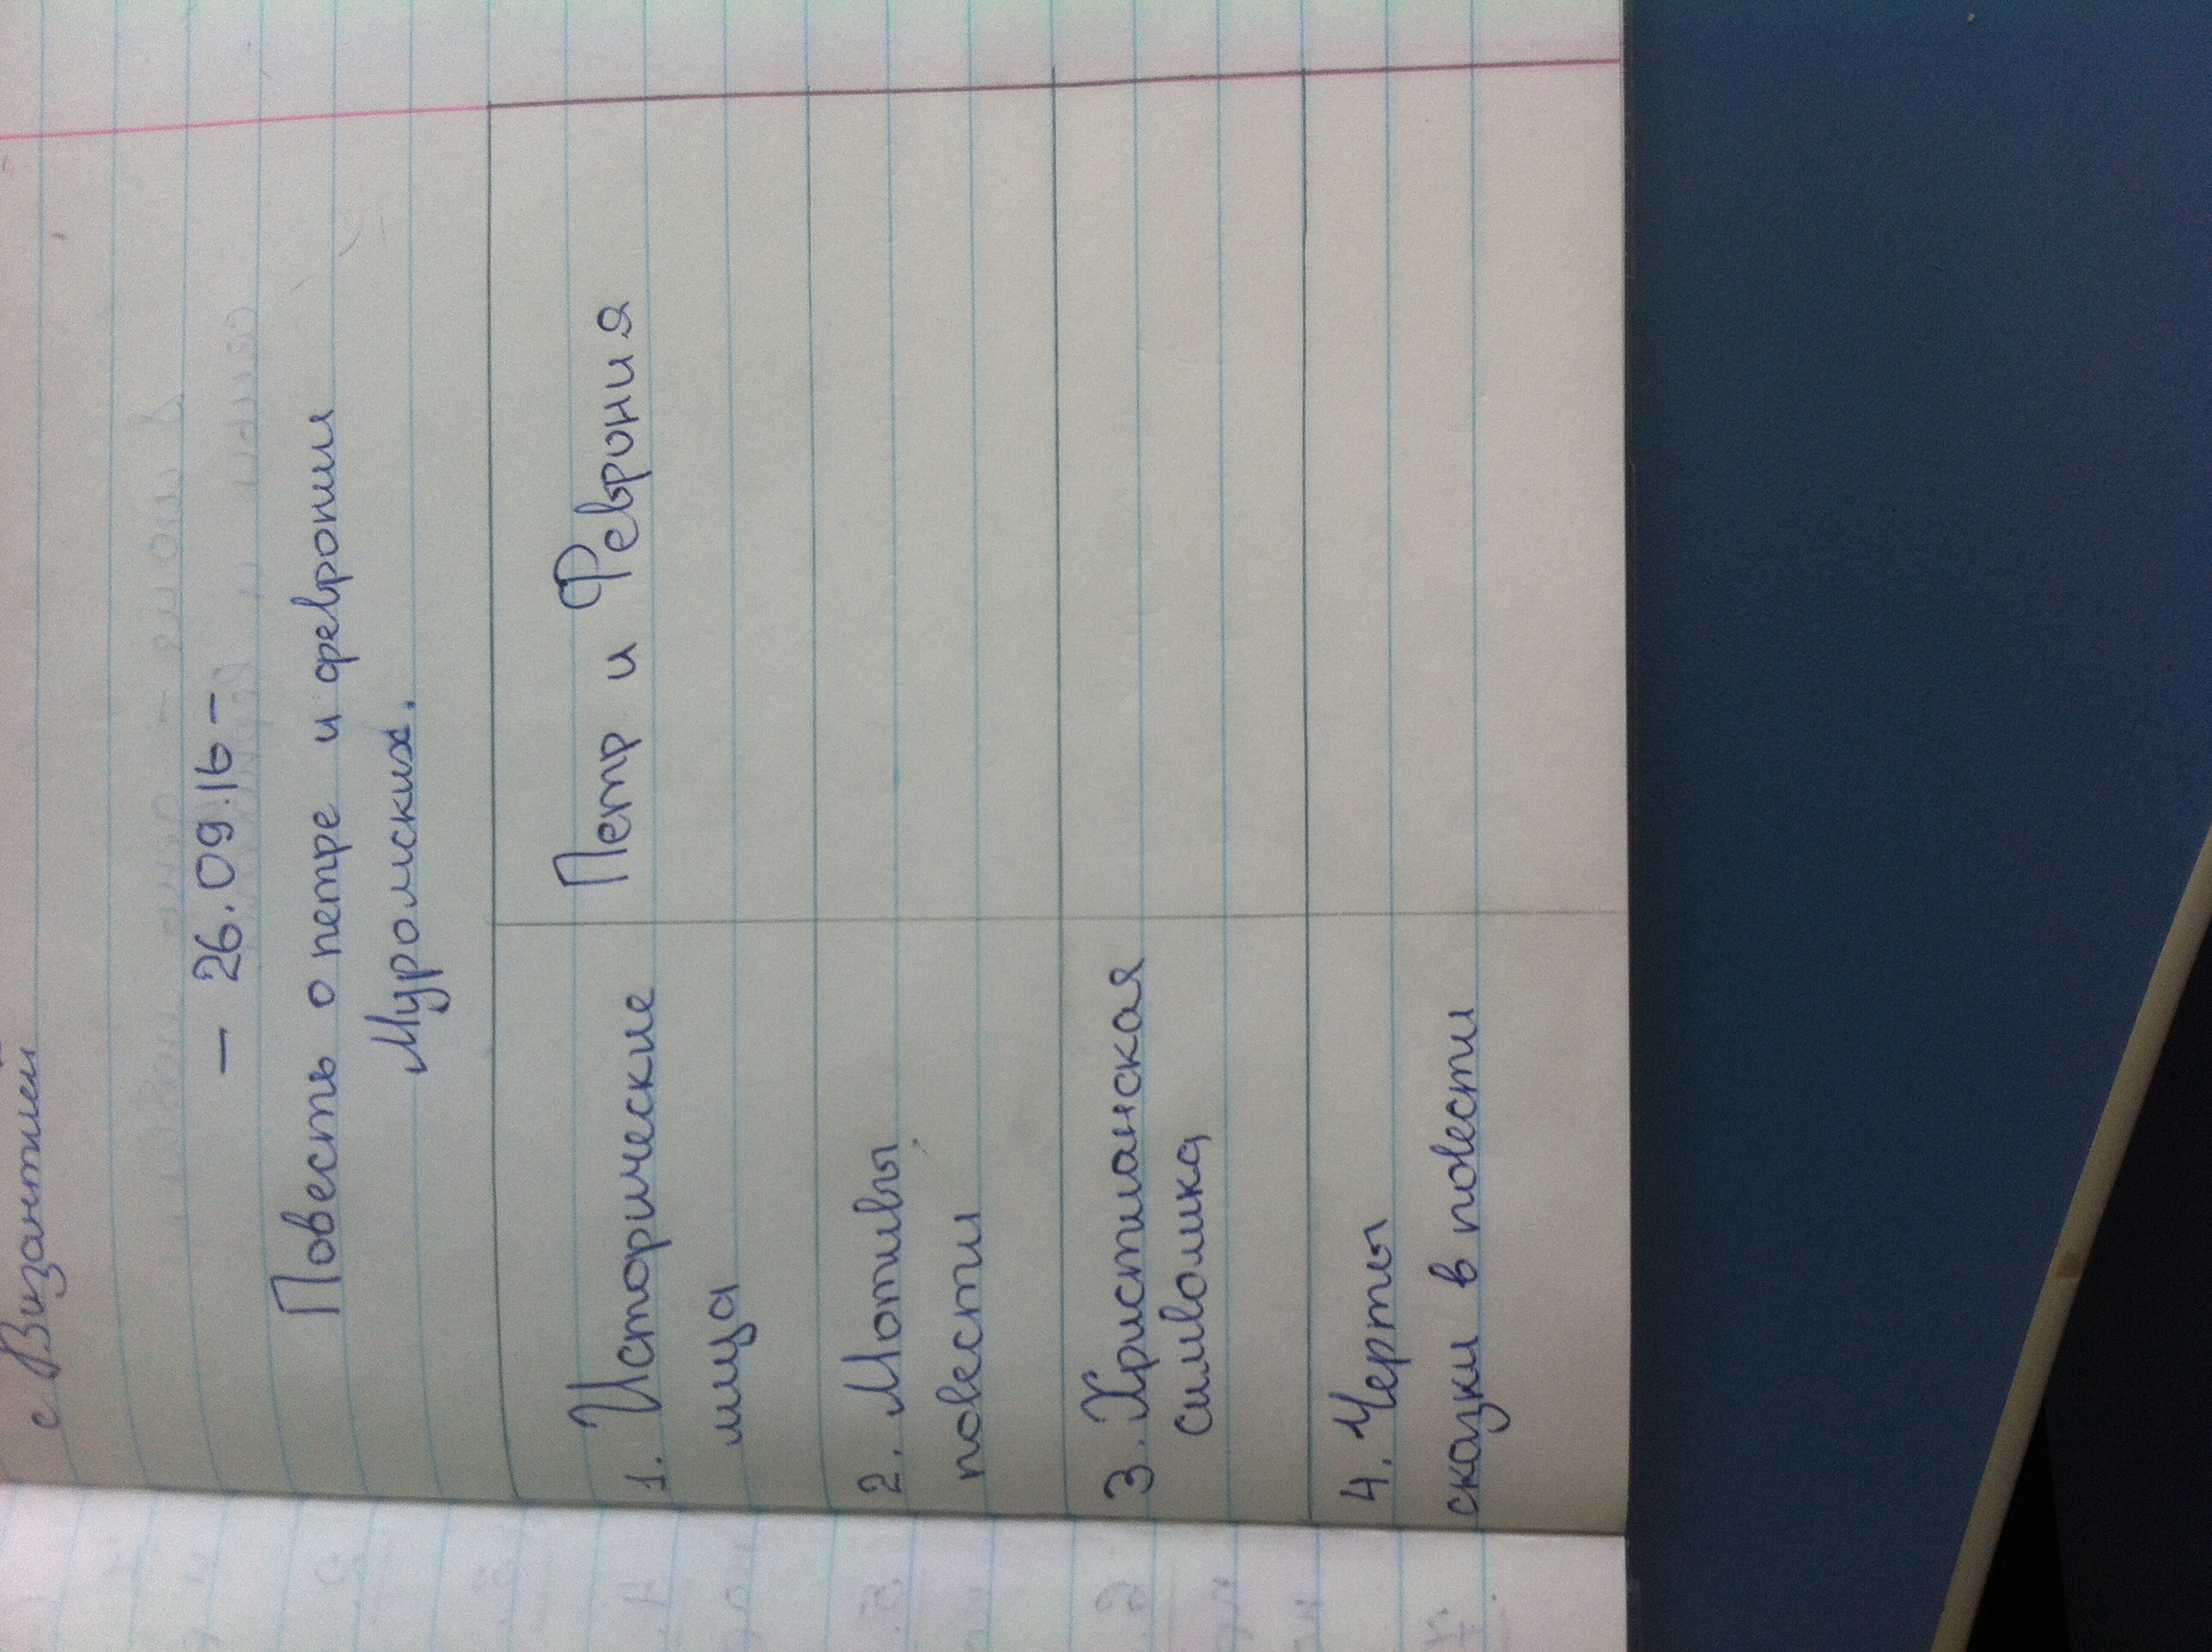 с Византией
– 26.09.16 –
Повесть о петре и февронии
Муромских.
1. Исторические
лица
Петр и Феврония
2. Мотивы
повести
3. Христианская
символика
4. Черты
сказки в повести